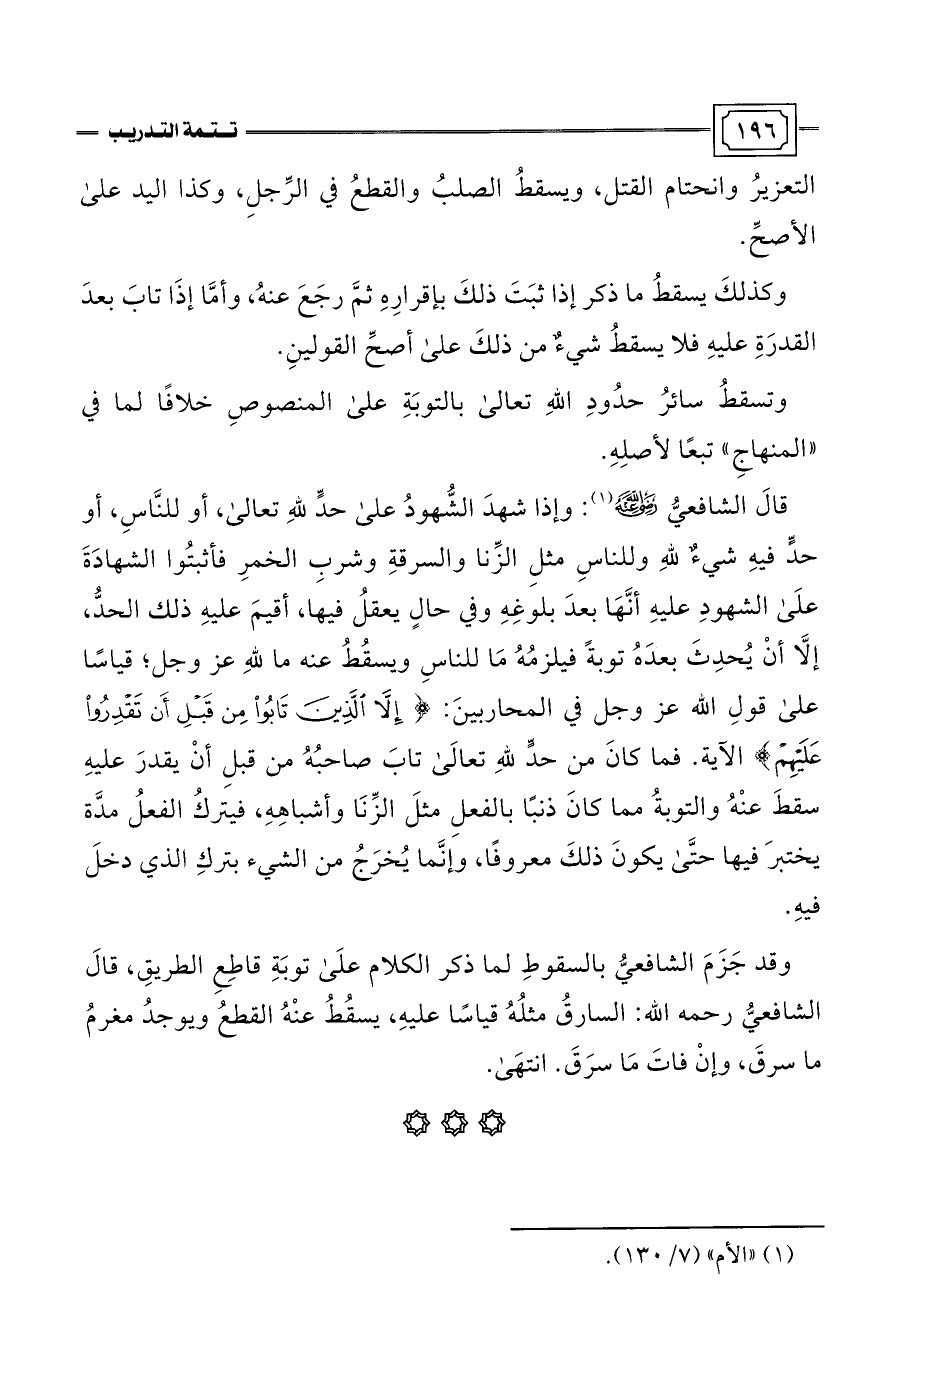 ١٩٦ تتمة التدريب
التعزيرُ وانحتام القتل، ويسقطُ الصلبُ والقطعُ في الرِّجلِ، وكذا اليد علىٰ
الأصحِّ.
وكذلكَ يسقطُ ما ذكر إذا ثبَتَ ذلكَ بإقرارِهِ ثمَّ رجَعَ عنهُ، وأمَّا إذَا تابَ بعدَ
القدرَةِ عليهِ فلا يسقطُ شيءٌ من ذلكَ علىٰ أصحِّ القولينِ.
وتسقطُ سائرُ حدُودِ اللهِ تعالىٰ بالتوبَةِ علىٰ المنصوصِ خلافًا لما في
«المنهاجِ» تبعًا لأصلِهِ.
قالَ الشافعيُّ رَضِيَ اللهُ عَنْهُ(١): وإذا شهدَ الشُّهودُ علىٰ حدٍّ للهِ تعالىٰ، أو للنَّاسِ، أو
حدٍّ فيهِ شيءٌ للهِ وللناسِ مثلِ الزِّنا والسرقةِ وشربِ الخمرِ فأثبتُوا الشهادَةَ
علَىٰ الشهودِ عليهِ أنَّهَا بعدَ بلوغِهِ وفي حالٍ يعقلُ فيها، أقيمَ عليهِ ذلك الحدُّ،
إلَّا أنْ يُحدِثَ بعدَهُ توبةً فيلزمُهُ مَا للناسِ ويسقُطُ عنه ما للهِ عز وجل؛ قياسًا
علىٰ قولِ الله عز وجل في المحاربينَ: ﴿إِلَّا ٱلَّذِينَ تَابُواْ مِن قَبْلِ أَن تَقْدِرُواْ
عَلَيْهِمْ﴾ الآية. فما كانَ من حدٍّ للهِ تعالَىٰ تابَ صاحبُهُ من قبلِ أنْ يقدرَ عليهِ
سقطَ عنْهُ والتوبةُ مما كانَ ذنبًا بالفعلِ مثلَ الزِّنَا وأشباهِهِ، فيتركُ الفعلُ مدَّة
يختبرَ فيها حتَّىٰ يكونَ ذلكَ معروفًا، وإنَّما يُخرَجُ من الشيء بتركِ الذي دخلَ
فيهِ.
وقد جَزَمَ الشافعيُّ بالسقوطِ لما ذكر الكلام علَىٰ توبَةِ قاطعِ الطريقِ، قالَ
الشافعيُّ رحمه الله: السارقُ مثلُهُ قياسًا عليهِ، يسقُطُ عنْهُ القطعُ ويوجدُ مغرمُ
ما سرقَ، وإنْ فاتَ مَا سرَقَ. انتهَىٰ.
(١) «الأم» (٧/ ١٣٠).